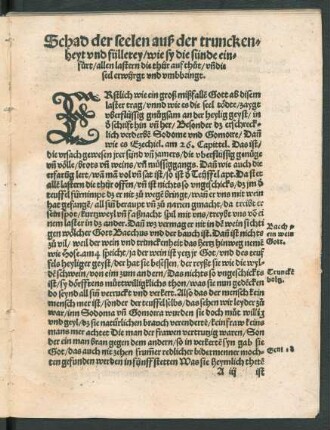 Schad der seelen auß der truncken-
heyt vnd füllerey/wie sy die sünde ein-
fürt/allen lastern die thür auff thůt/vñ die
sel erwürgt vnd vmbbringt.
ERstlich wie ein groß mißfall Gott ab disem
laster trag/vnnd wie es die seel tödte/zaygt
überflüssig gnůgsam an der heylig geyst/in
d schrifft hin vñ her/Besonder dz erschreck-
lich verderbē Sodome vnd Gomorre/Dañ
wie es Ezechiel. am 26. Capittel. Das ist/
die vrsach gewesen jrer sünd vñ jamers/die überflüssig genüge
vñ völle/brots vñ weins/vñ müssiggangs. Dañ wie auch die
erfarūg lert/wa mā vol vñ sat ist/so ist
alle lastern die thür offen/vñ ist nichts so vngeschicks/dz jm d
teuffel fürnimpt dz er nit zů wegē bring/wañ er vns mit wein
hat gefangē/all siñ beraupt vñ zů narren gmacht/da treibt er
sein spot/kurtzweyl vñ faßnacht spil mit vns/treybt vns vō ei
nem laster in dz ander. Dañ wz vermager nit in dē wein sichst
gen wölcher Gott Bacchus vnd der bauch ist. Dañ ist nichts
zů vil/weil der wein vnd trunckenheit das hertz hinweg nemē
wie Hose am 4. spricht/ja der wein ist yetz jr Gott/vnd des teuf
fels heyliger geyst/der hat sie besessen. der reyßt sie wie die wy/
de schwein/von eim zum andern/Das nichts so vngeschickts
ist/sy dörfftens můttwilligklich thon/was sie nun gedēcken
do seynd all siñ verruckt vnd verkert. Also das der mensch kein
mensch mer ist/sonder der teuffelsbůb/das sehen wir leyder zů
war/inn Sodoma vñ Gomorra wurden sie doch můt willig
vnd geyl/dz sie natürlichen brauch verenderte/kein fraw kein
mans mer achtet Die man der frawen vertrung waren/Son
der ein man bran gegen dem andern/so in verkerte syn gab sie
Got/das auch nit zehen frum̄er redlicher bider menner moch-
ten gefunden werden in fünff stetten Was sie heymlich theten
A iij ist
ein wein
Gott.
Trunckē